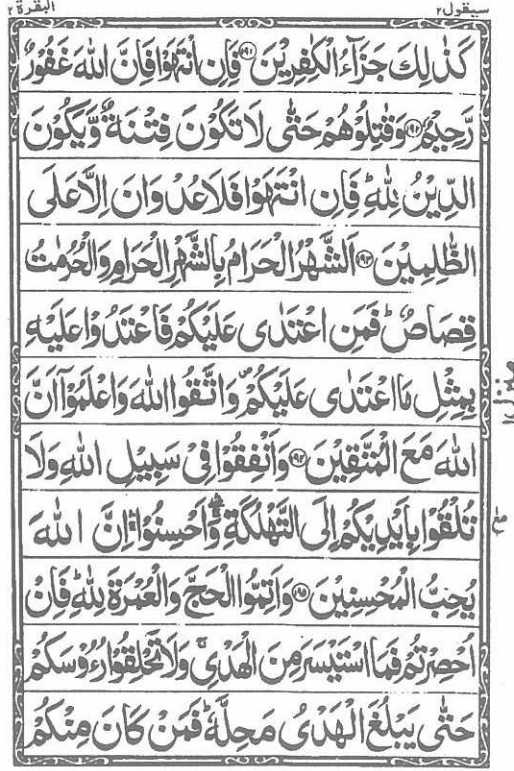 سيقول ٢ البقرة ٢
كَذٰلِكَ جَزَآءُ الْكٰفِرِيْنَ ﴿۱۹۱﴾ فَاِنِ انْتَهَوْا فَاِنَّ اللّٰهَ غَفُوْرٌ
رَّحِيْمٌ ﴿۱۹۲﴾ وَقٰتِلُوْهُمْ حَتّٰى لَا تَكُوْنَ فِتْنَةٌ وَّيَكُوْنَ
الدِّيْنُ لِلّٰهِ ؕ فَاِنِ انْتَهَوْا فَلَا عُدْوَانَ اِلَّا عَلَى
الظّٰلِمِيْنَ ﴿۱۹۳﴾ اَلشَّهْرُ الْحَرَامُ بِالشَّهْرِ الْحَرَامِ وَالْحُرُمٰتُ
قِصَاصٌ ؕ فَمَنِ اعْتَدٰى عَلَيْكُمْ فَاعْتَدُوْا عَلَيْهِ
بِمِثْلِ مَا اعْتَدٰى عَلَيْكُمْ ۪ وَاتَّقُوا اللّٰهَ وَاعْلَمُوْۤا اَنَّ
اللّٰهَ مَعَ الْمُتَّقِيْنَ ﴿۱۹۴﴾ وَاَنْفِقُوْا فِيْ سَبِيْلِ اللّٰهِ وَلَا
تُلْقُوْا بِاَيْدِيْكُمْ اِلَى التَّهْلُكَةِ ۛۖ وَاَحْسِنُوْا ۛۚ اِنَّ اللّٰهَ
يُحِبُّ الْمُحْسِنِيْنَ ﴿۱۹۵﴾ وَاَتِمُّوا الْحَجَّ وَالْعُمْرَةَ لِلّٰهِ ؕ فَاِنْ
اُحْصِرْتُمْ فَمَا اسْتَيْسَرَ مِنَ الْهَدْيِ ۚ وَلَا تَحْلِقُوْا رُءُوْسَكُمْ
حَتّٰى يَبْلُغَ الْهَدْىُ مَحِلَّهٗ ؕ فَمَنْ كَانَ مِنْكُمْ
منزل ١